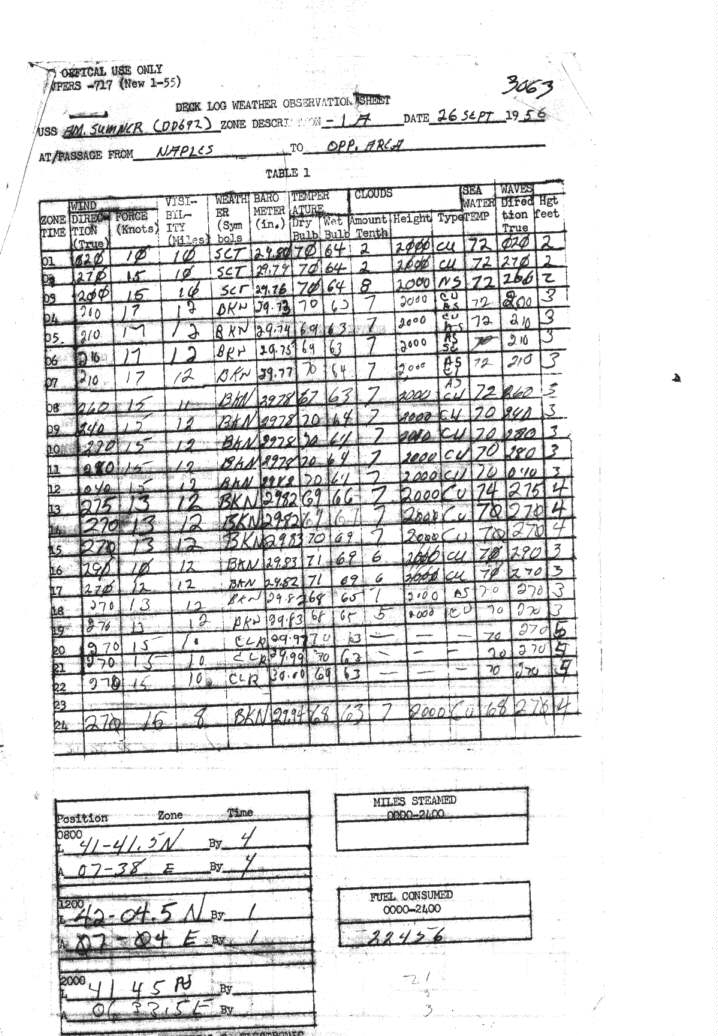 OFFICAL USE ONLY
PERS -717 (New 1-55)
3063
DECK LOG WEATHER OBSERVATION SHEET
USS AM. SUMNER (DD692) ZONE DESCRIPTION -1A DATE 26 SEPT 1956
AT/PASSAGE FROM NAPLES TO OPP. AREA
TABLE 1
ZONE TIME WIND DIRECTION (True) FORCE (Knots) VISIBILITY (Miles) WEATHER (Symbols BAROMETER (in.) TEMPERATURE Dry Bulb Wet Bulb CLOUDS Amount Tenth Height Type SEA WATER TEMP WAVES Direction True Hgt feet
01 020 10 10 SCT 29.80 70 64 2 2000 CU 72 020 2
270 15 10 SCT 29.79 70 64 2 2000 CU 72 270 2
03 200 15 10 SCT 29.76 70 64 8 2000 NS 72 200 2
04 210 17 12 BKN 29.73 70 63 7 2000 CU AS 72 200 3
05. 210 17 12 BKN 29.74 69 63 7 2000 CU AS 72 210 3
06 210 17 12 BKN 29.75 69 63 7 2000 AS SC 70 210 3
07 210 17 12 BKN 29.77 70 64 7 2000 AS 72 210 3
08 260 15 11 BKN 2978 67 63 7 2000 CU 72 260 3
09 240 15 12 BKN 2978 70 64 7 2000 CU 70 240 3
10 270 15 12 BKN 2978 70 64 7 2000 CU 70 280 3
11 280 15 12 BKN 2978 70 64 7 2000 CU 70 280 3
12 040 15 12 BKN 70 64 7 2000 CU 70 040 3
13 275 13 12 BKN 2982 69 66 7 2000 CU 74 275 4
14 270 13 12 BKN 2982 69 7 2000 CU 70 270 4
15 270 13 12 BKN 2983 70 69 7 2000 CU 70 270 4
16 290 10 12 BKN 29.83 71 69 6 2000 CU 70 290 3
17 270 12 12 BKN 29.82 71 69 6 2000 CU 70 270 3
18 270 13 12 BKN 29.82 68 65 2000 AS 70 270 3
19 270 13 12 BKN 29.83 68 65 5 2000 CU 70 270 3
20 270 15 10 CLR 29.97 70 63 — — — 70 270 5
21 270 15 10 CLR 29.99 70 63 — — — 70 270 4
22 270 15 10 CLR 30.00 69 63 — — — 70 270 4
23
24 270 16 8 BKN 29.94 68 63 7 2000 CU 68 270 4
Position Zone Time
0800
L 41-41.5N By 4
A 07-38 E By 4
1200
L 42-04.5 N By 1
A 07-04 E By 1
2000
L 41 45 By
A 06 33.5E By
MILES STEAMED
0000-2400
FUEL CONSUMED
0000-2400
22456
21
3